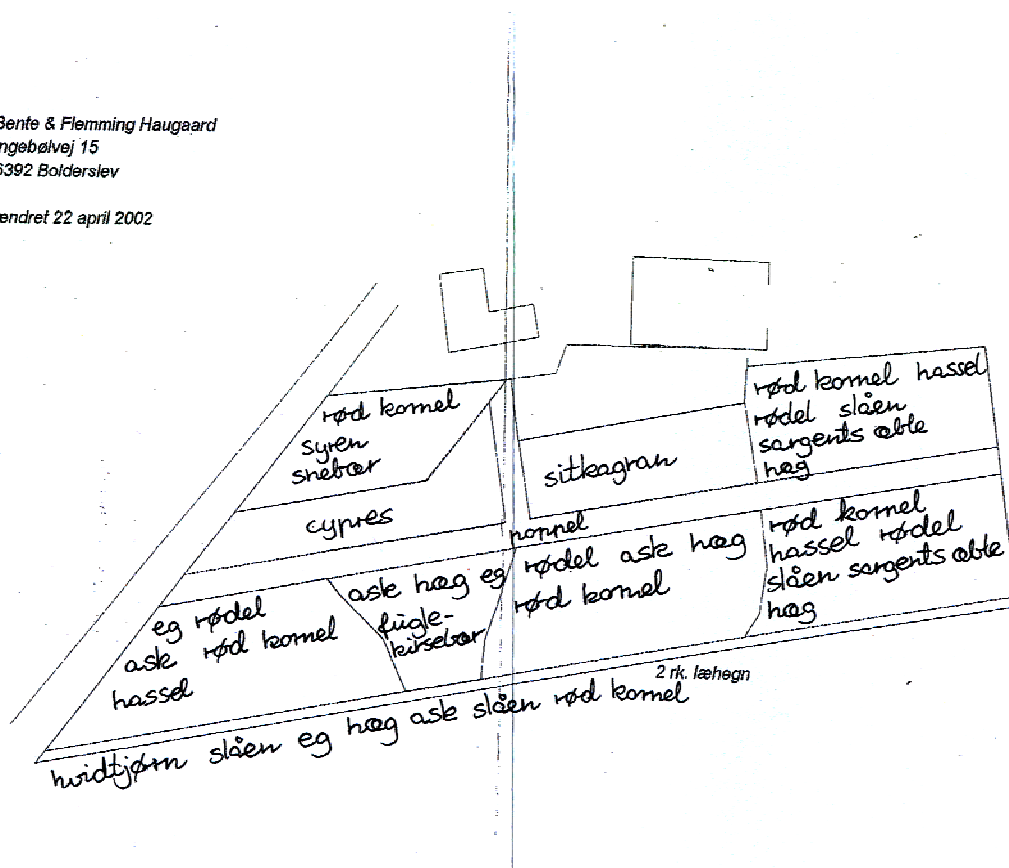 Bente & Flemming Haugaard
ngebølvej 15
6392 Bolderslev
ændret 22 april 2002
rød kornel
syren
snebær
cypres
sitkagran
rød kornel hassel
rødel slåen
sargents æble
hæg
poppel
eg rødel
ask rød kornel
hassel
ask hæg eg
fugle-
kirsebær
rødel ask hæg
rød kornel
rød kornel
hassel rødel
slåen sargents æble
hæg
2 rk. læhegn
hvidtjørn slåen eg hæg ask slåen rød kornel